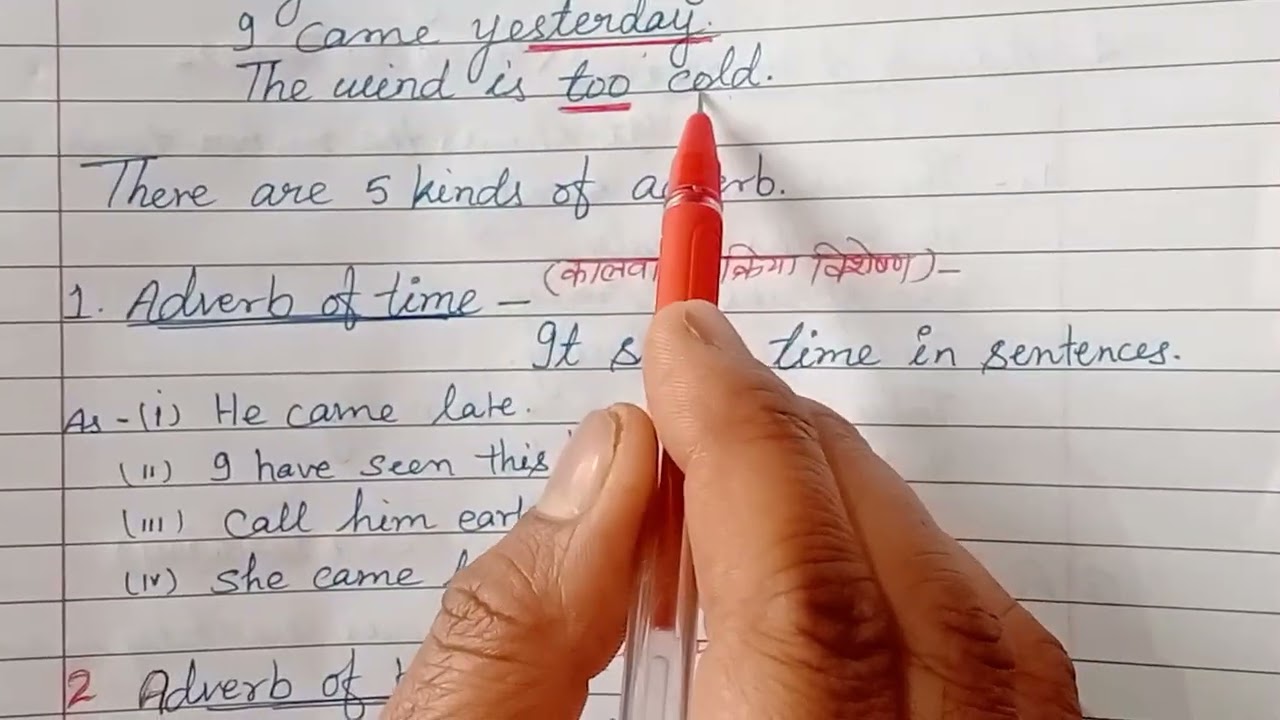 I came yesterday.
The wind is too cold.
There are 5 kinds of
1. Adverb of time – क्रिया विशेषण) –
It time in sentences.
As - (i) He came late.
(ii) I have seen this
(iii) Call him
(iv) She came
2 Adverb of